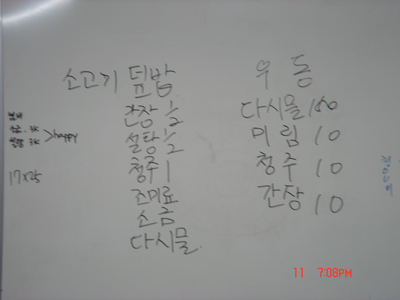 소고기 덮밥
간장 1/2
설탕 1/2
청주 1
조미료
소금
다시물.
우동
다시물 100
미림 10
청주 10
간장 10
17x25
11 7:08PM